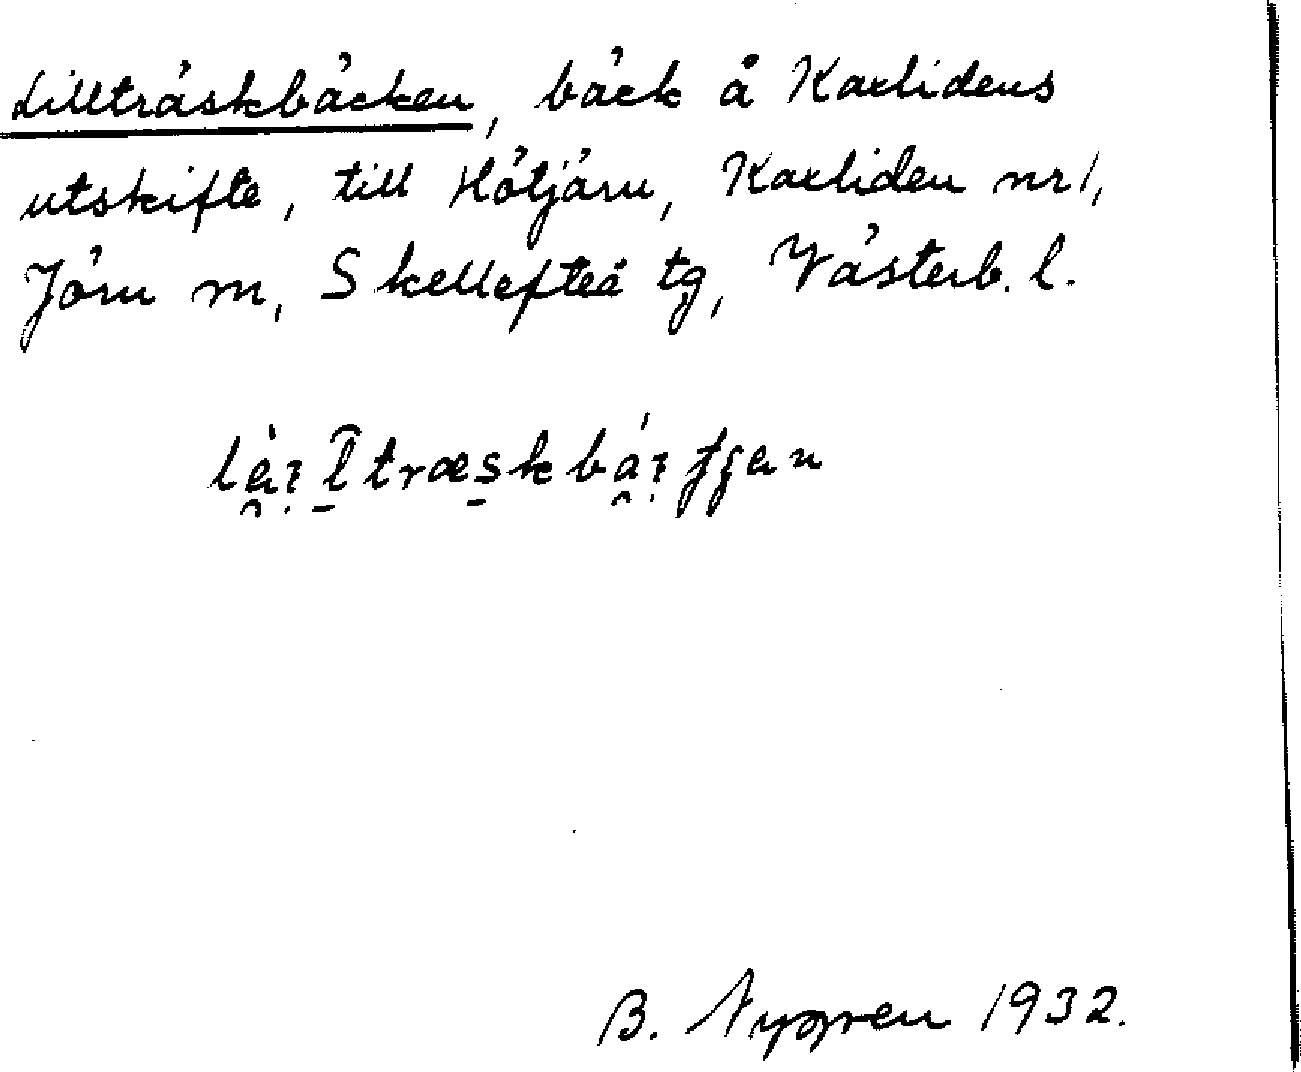 Lillträskbäcken, bäck å Karlidens
utskifte, till Hötjärn, Karliden nr 1,
Jörn sn, Skellefteå tg, Västerb. l.
B. Nygren 1932.